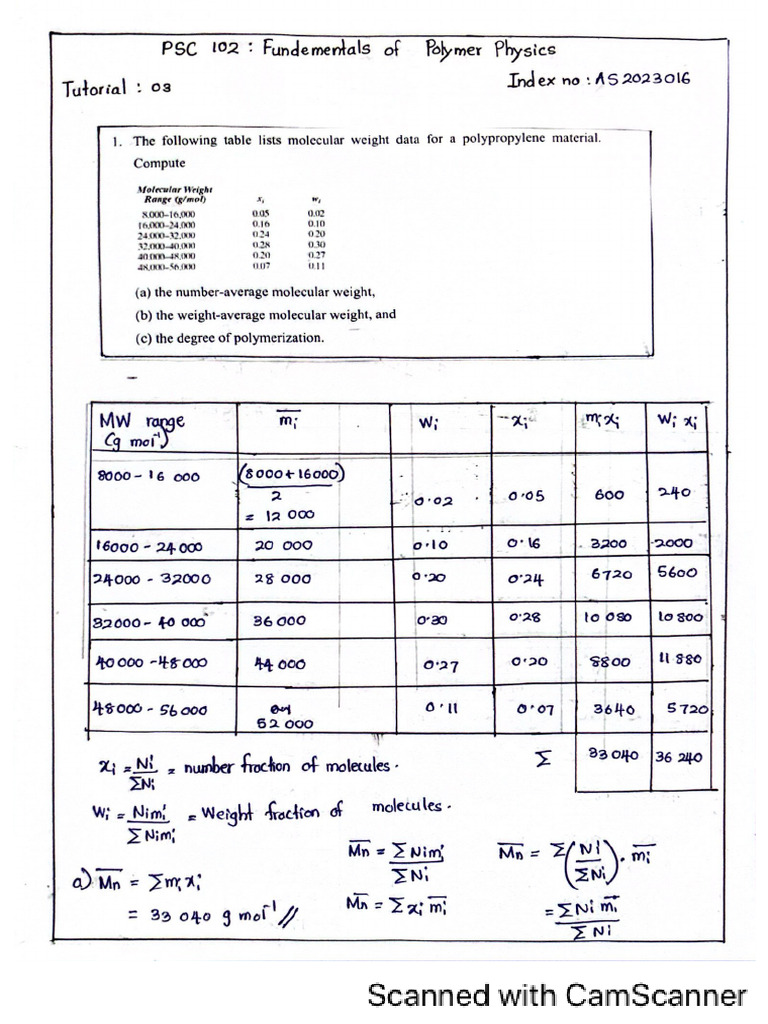 PSC 102 : Fundementals of Polymer Physics
Index no : AS2023016
Tutorial : 03
1. The following table lists molecular weight data for a polypropylene material.
Compute
Molecular Weight
Range (g/mol) xᵢ wᵢ
8,000–16,000 0.05 0.02
16,000–24,000 0.16 0.10
24,000–32,000 0.24 0.20
32,000–40,000 0.28 0.30
40,000–48,000 0.20 0.27
48,000–56,000 0.07 0.11
(a) the number-average molecular weight,
(b) the weight-average molecular weight, and
(c) the degree of polymerization.
MW range (g mol⁻¹) m̅ᵢ Wᵢ xᵢ mᵢxᵢ Wᵢ xᵢ
8000 - 16 000 (8000+16000)/2 = 12 000 0.02 0.05 600 240
16000 - 24000 20 000 0.10 0.16 3200 2000
24000 - 32000 28 000 0.20 0.24 6720 5600
32000 - 40 000 36 000 0.30 0.28 10 080 10 800
40 000 - 48 000 44 000 0.27 0.20 8800 11 880
48000 - 56 000 52 000 0.11 0.07 3640 5720
Σ 33 040 36 240
xᵢ = Nᵢ/ΣNᵢ = number fraction of molecules.
Wᵢ = Nᵢmᵢ/ΣNᵢmᵢ = Weight fraction of molecules.
M̅n = ΣNᵢmᵢ/ΣNᵢ M̅n = Σ(Nᵢ/ΣNᵢ). m̅ᵢ
a) M̅n = Σmᵢxᵢ
M̅n = Σxᵢm̅ᵢ = ΣNᵢ m̅ᵢ/ΣNᵢ
= 33 040 g mol⁻¹ //
Scanned with CamScanner